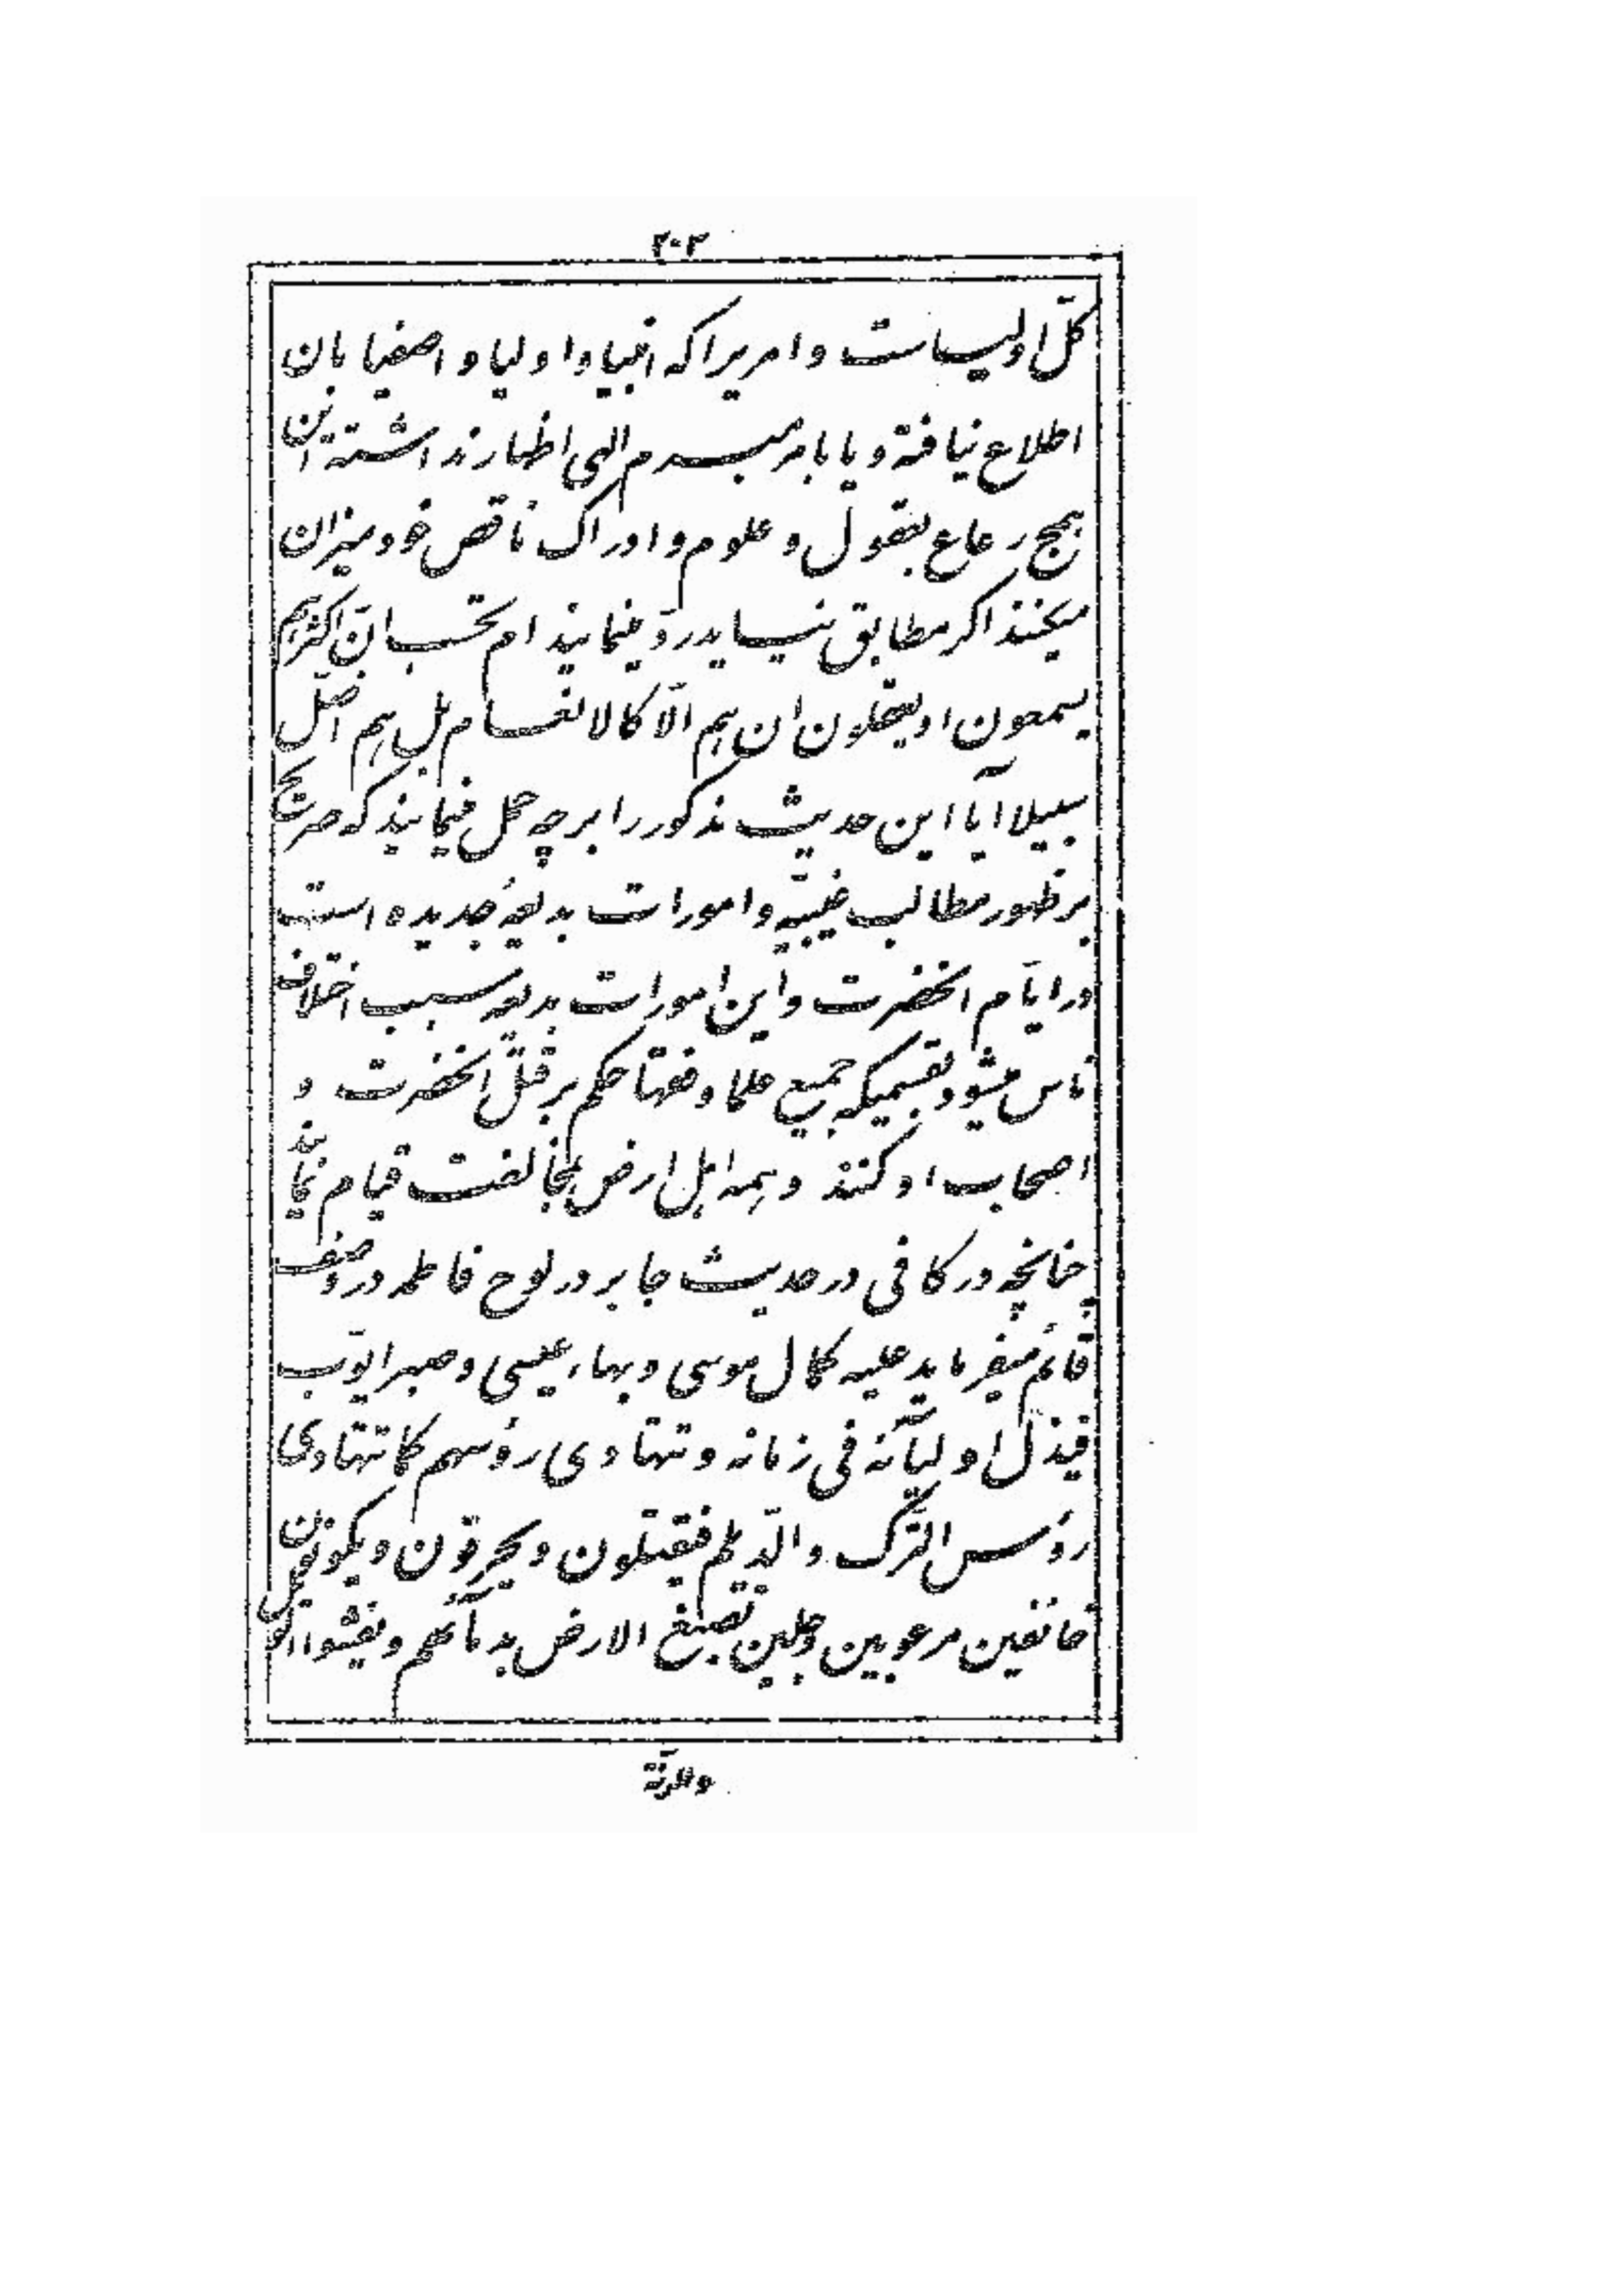 ٢٠٣
كلّ اوليا است و امريرا كه انبيا و اوليا و اصفيا بان
اطلاع نيافته و يا بامر مبرم الهى اظهار نداشته اين
همج رعاع بعقول و علوم و ادراك ناقص خود ميزان
ميكنند اكر مطابق نيايد ردّ مينمايند ام تحسب انّ اكثرهم
يسمعون او يعقلون ان هم الّا كالانعام بل هم اضلّ
سبيلا آيا اين حديث مذكور را بر چه حمل مينمايند كه صريح
بر ظهور مطالب غيبيّه و امورات بديعهٔ جديده است
در ايّام انحضرت و اين امورات بديعه سبب اختلاف
ناس ميشود بقسميكه جميع علما و فقها حكم بر قتل انحضرت و
اصحاب او كنند و همه اهل ارض بمخالفت قيام نمايند
چنانچه در كافى در حديث جابر در لوح فاطمه در وصف
قائم ميفرمايد عليه كمال موسى و بهاء عيسى و صبر ايّوب
فيذلّ اوليائه فى زمانه و تتهادى رؤسهم كما تتهادى
رؤس الترك و الدّيلم فيقتلون و يحرقون و يكونون
خائفين مرعوبين وجلين تصبغ الارض بدمائهم و يفشوا الويل
والرنّة